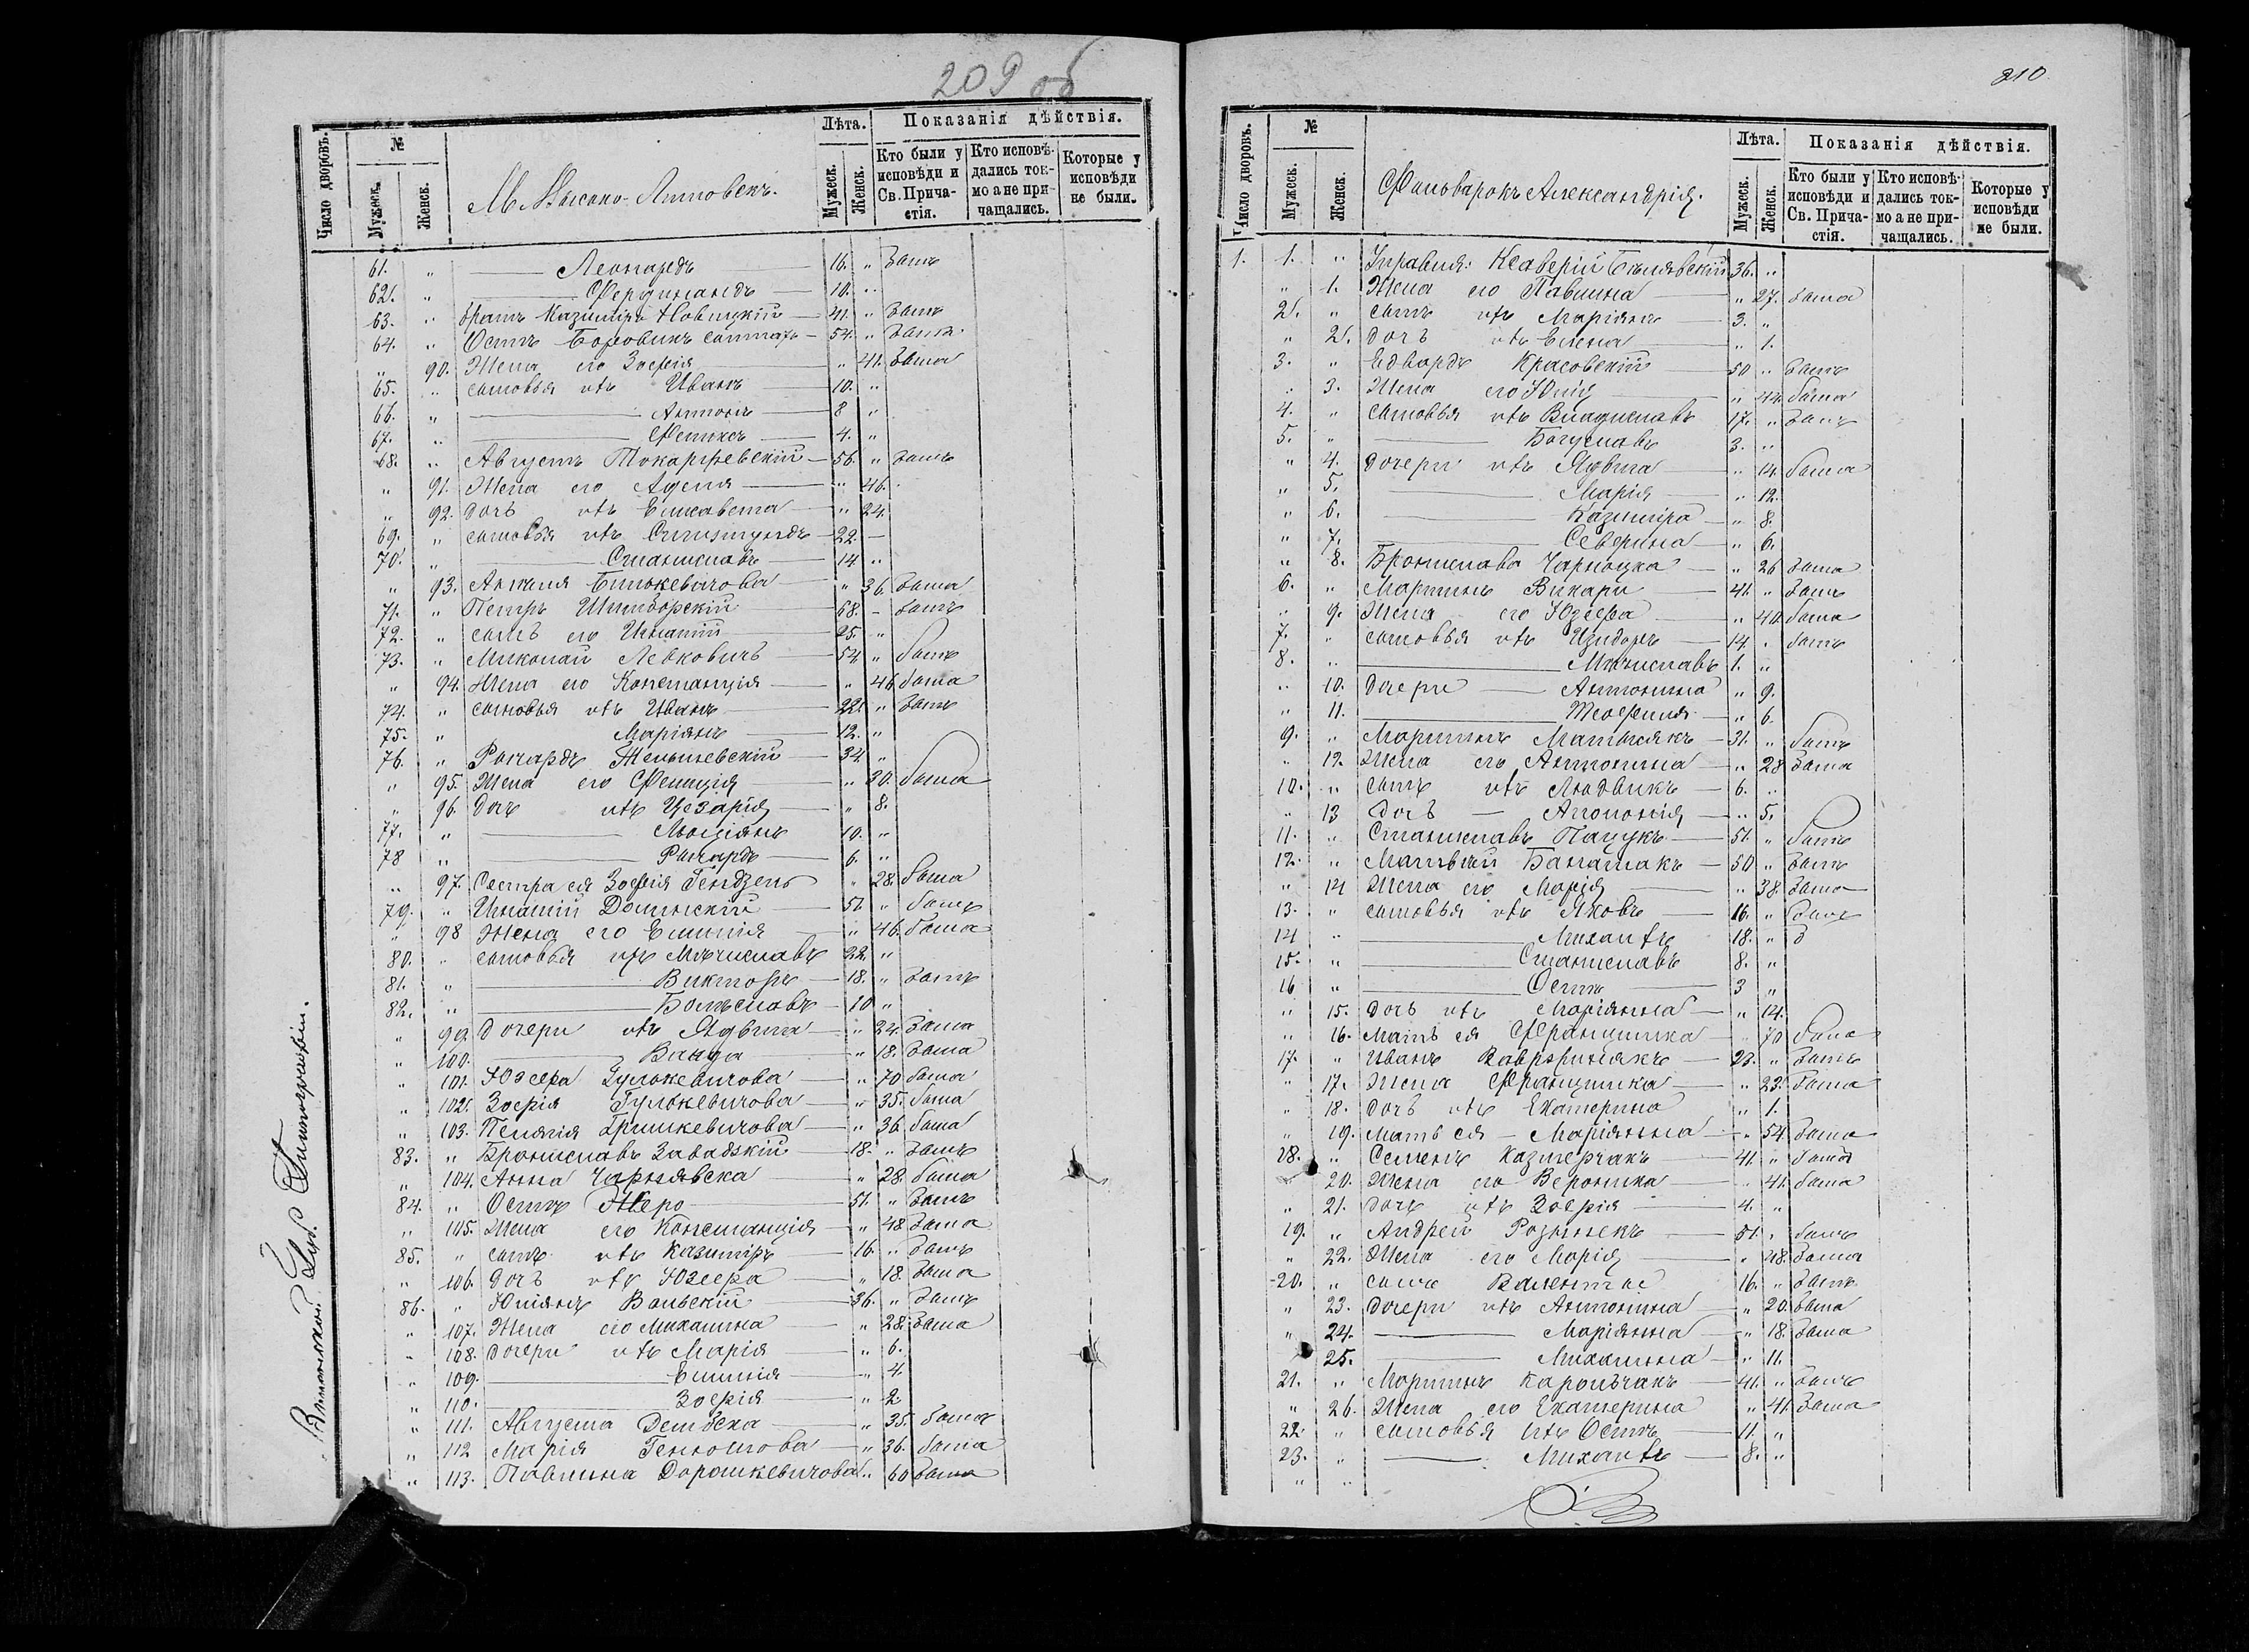 209 об
Число дворовъ.
№
Мужеск.
Женск.
М. Высоко-Литовскъ.
Лѣта.
Мужеск.
Женск.
Показанія дѣйствія.
Кто были у исповѣди и Св. Причастія.
Кто исповѣдались токмо а не причащались.
Которые у исповѣди не были.
61. " —— Леонардъ —— 16. " былъ
62. " —— Фердинандъ —— 10. "
63. " братъ Казиміръ Новицкій — 41. " былъ
64. " Осипъ Боровикъ — 54. " былъ
" 90. Жена его Зофія — " 41. была
65. " сыновья ихъ Иванъ — 10. "
66. " —— Антонъ — 8 "
67. " —— Феликсъ — 4. "
68. " Августъ Токаржевскій — 56. " былъ
" 91. Жена его Аделя — " 46.
" 92. дочь ихъ Елисавета — " 24.
69. " сыновья ихъ Сигизмундъ — 22. —
70. " —— Станиславъ — 14 "
" 93. Анеля Билькевичова — " 36. была
71. " Петръ — 68. - былъ
72. " сынъ его Игнатій — 25. "
73. " Миколай Левковичъ — 54 " былъ
" 94. Жена его Констанція — " 46 была
74. " сыновья ихъ Иванъ — 22. " былъ
75. " Маріянъ — 12. "
76. " Ричардъ — 34 "
" 95. Жена его Фелиція — " 30. была
" 96. дочь ихъ Цезарія — " 8.
77. " —— Люціянъ 10. "
78 " —— Ричардъ — 6. "
" 97. Сестра ея Зофія Гендзель " 28. была
79. " Игнатій Долинскій — 51 " былъ
" 98 Жена его Емилія — " 46. была
80. " сыновья ихъ Мѣчиславъ 22. "
81. " —— Викторъ — 18. " былъ
82. " —— Болеславъ — 10 "
" 99. Дочери ихъ Ядвига — " 24. была
" 100. —— Ванда " 18. была
" 101. Юзефа Гулькевичова — " 70 была
" 102. Зофія Гулькевичова — " 35. была
" 103. Пелагія Гринкевичова — " 36 была
83. " Брониславъ Завадзкій — 18. " былъ
" 104. Анна Чарнявска " 28. была
84. " Осипъ Жеро — 51. " былъ
" 105. Жена его Констанція — " 48 была
85. " сынъ ихъ Казиміръ — 16. " былъ
" 106. Дочь ихъ Юзефа — " 18. была
86. " Юліянъ Вольскій — 36. " былъ
" 107. Жена его Михалина — " 28. была
" 108. дочери ихъ Марія — " 6.
" 109. —— Емилія — " 4.
" 110. —— Зофія — " 2
" 111. Августа Дембска — " 35. была
" 112 Марія — " 36. была
" 113. Павлина Дорошкевичова " 60 была
210.
Число дворовъ.
№
Мужеск.
Женск.
Фольварокъ Александрія.
Лѣта.
Мужеск.
Женск.
Показанія дѣйствія.
Кто были у исповѣди и Св. Причастія.
Кто исповѣдались токмо а не причащались.
Которые у исповѣди не были.
1. 1. " Управля: Ксаверій Бѣлявскій 36. "
" 1. Жена его Павлина — " 27. была
2. " сынъ ихъ Маріянъ — 3. "
" 2. дочь ихъ Елена — " 1.
3. " Едвардъ Красовскій — 50 " былъ
" 3. Жена его Юлія " 44. была
4. " сыновья ихъ Владиславъ 17. " былъ
5. " —— Богуславъ 3. "
" 4. дочери ихъ Ядвига — " 14. была
" 5. —— Марія — " 12.
" 6. —— Казиміра — " 8.
" 7. —— Северина — " 6.
" 8. Бронислава Чарноцка — " 26 была
6. " Мартинъ Викари — 41. " былъ
" 9. Жена его Юзефа — " 40. была
7. " сыновья ихъ Изидоръ — 14. " былъ
8. " —— Мѣчиславъ 1. "
" 10. Дочери —— Антонина " 9.
" 11. —— Теофилія — " 6.
9. " Мартинъ Матысякъ — 31. " былъ
" 12. Жена его Антонина — " 28 была
10. " сынъ ихъ Людвикъ — 6. "
" 13 Дочь — Аполонія — " 5.
11. " Станиславъ Пацукъ — 51. " былъ
12. " Матвѣй — 50 " былъ
" 14 Жена его Марія — " 38. была
13. " сыновья ихъ Яковъ — 16. " былъ
14 " —— Михаилъ 18. " б
15. " —— Станиславъ 8. "
16 " —— Осипъ — 3 "
" 15. дочь ихъ Маріянна — " 14.
" 16. Мать ея Францишка — " 70 была
17. " Иванъ Вавржинякъ — 23. " былъ
" 17. Жена Францишка — " 23. была
" 18. дочь ихъ Екатерина " 1.
" 19. Мать ея — Маріянна — " 54 была
18. " Семенъ Казмерчакъ — 41. " былъ
20. Жена его Вероника — " 41. была
" 21. дочь ихъ Зофія — 4. "
19. " Андрей — 51. " былъ
" 22. Жена его Марія — " 48. была
20. " сынъ Валентій 16. " былъ
" 23. Дочери ихъ Антонина — " 20. была
" 24. —— Маріянна — " 18. была
25. —— Михалина — " 11.
21. " Мартинъ Карольчакъ — 41. " былъ
" 26. Жена его Екатерина " 41. была
22. " сыновья ихъ Осипъ — 11. "
23. " —— Михаилъ — 8. "
" "